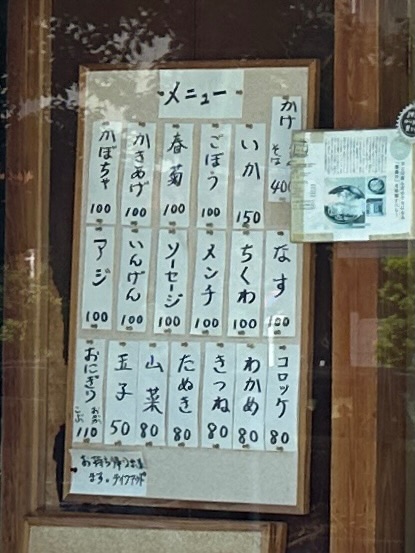 メニュー
かけそば 400
いか 150
ごぼう 100
春菊 100
かきあげ 100
かぼちゃ 100
なす 100
ちくわ 100
メンチ 100
ソーセージ 100
いんげん 100
アジ 100
コロッケ 80
わかめ 80
きつね 80
たぬき 80
山菜 80
玉子 50
おにぎり おかか こぶ 110
お持ち帰り出来
ます。テイクアウト